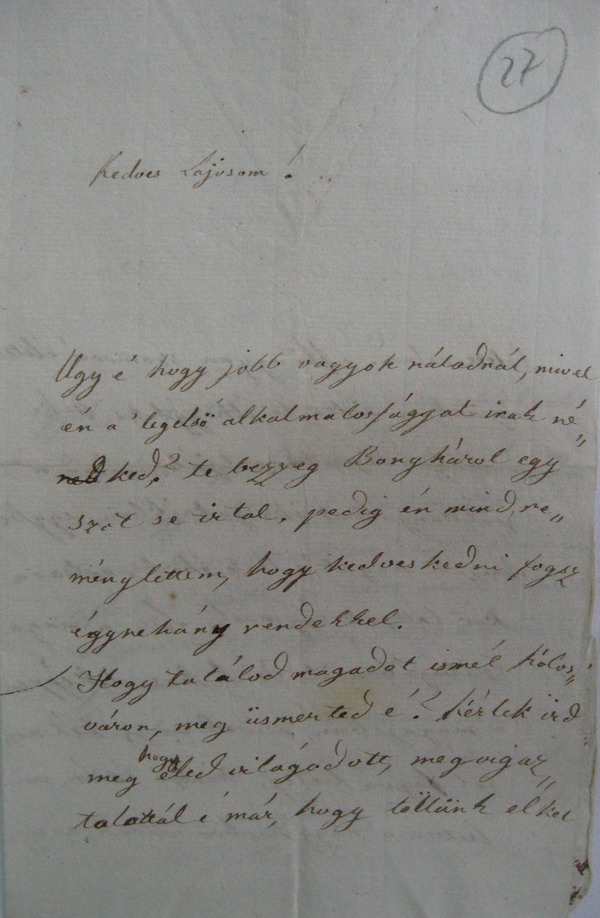 27
Kedves Lajosom!
Ugy é hogy jobb vagyok náladnál, mivel
én a' legelső alkalmatossággyal irok né„
ked,? te bezzeg Bonyhárol egy
szót se irtal, pedig én mind re„
ménylettem, hogy kedveskedni fogsz
éggynehány rendekkel.
Hogy találod magadot ismét Kolos„
váron, meg üsmerted é? kérlek ird
meg hogy éled világodott, megvigaz„
talottál é már, hogy töllünk elkel